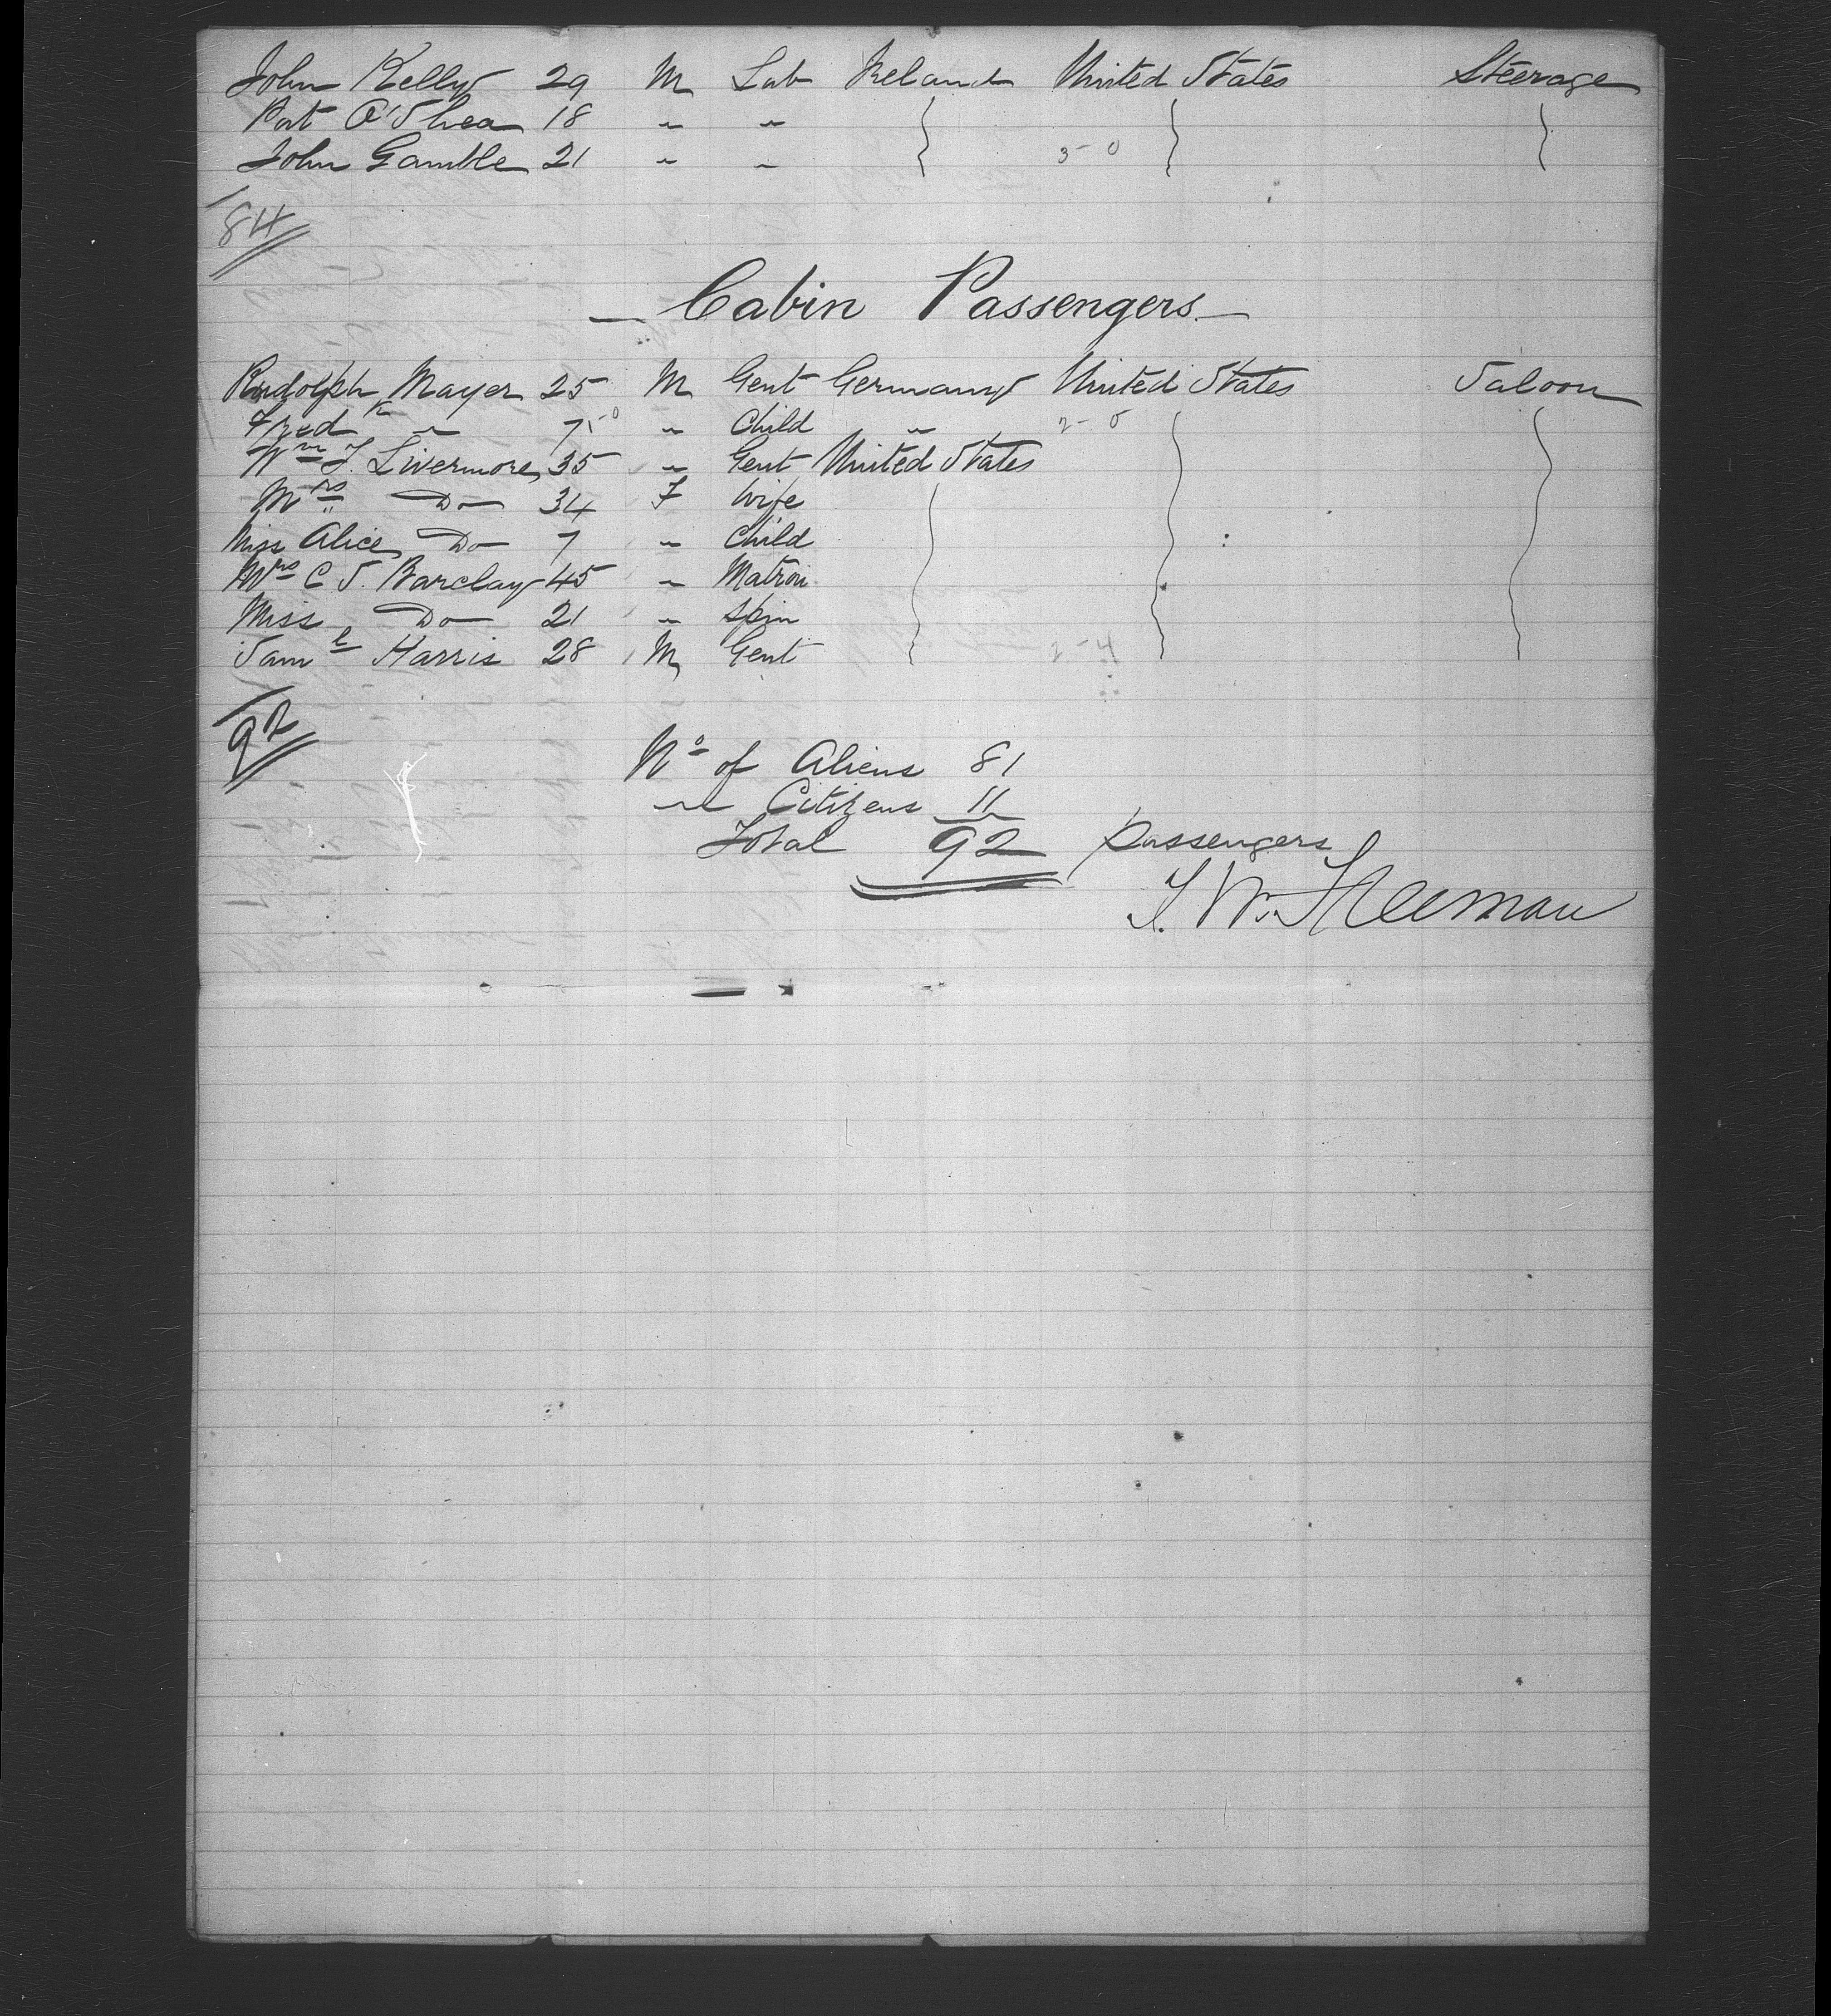 John Kelly 29 M Lab Ireland United States Steerage
Pat O'Shea 18 " "
John Gamble 21 " " 3-0
84
Cabin Passengers
Rudolph Mayer 25 M Gent Germany United States Saloon
Fredk " 7 " Child " 2-0
Wm J. Livermore 35 " Gent United States
Mrs Do 34 F Wife
Miss Alice Do 7 " Child
Mrs C S. Barclay 45 " Matron
Miss Do 21 " Spin
Saml Harris 28 M Gent 2-4
92
No of Aliens 81
" Citizens 11
Total 92 Passengers